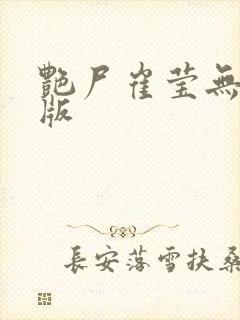 艷尸崔莹無
版
長安落雪扶桑